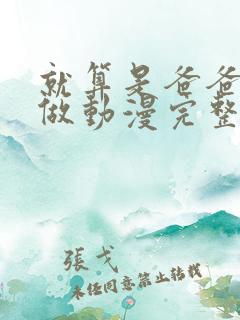 就算是爸爸
做動漫完整
張戈
未经同意禁止转载